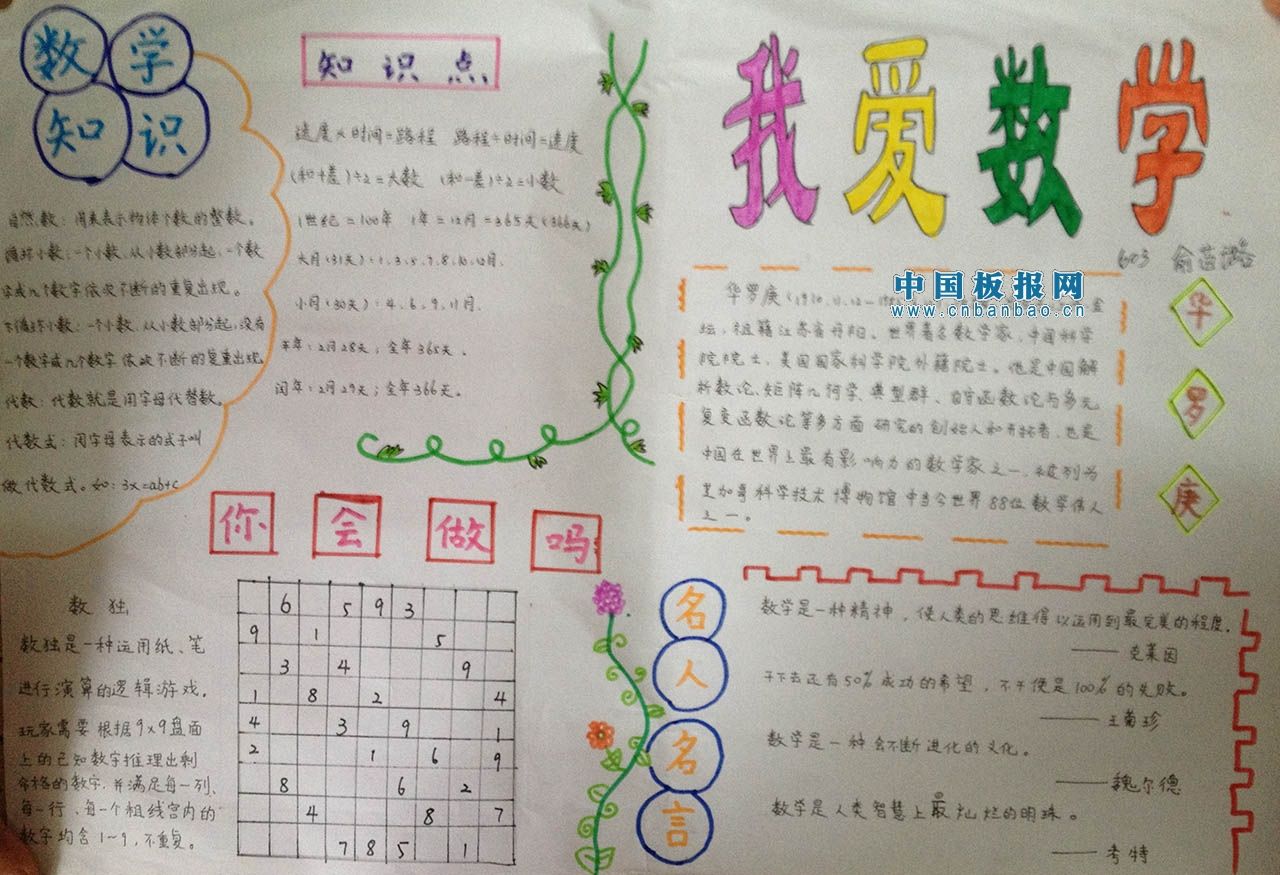 数学
知识
自然数：用来表示物体个数的整数。
循环小数：一个小数，从小数部分起，一个数
字或几个数字依次不断的重复出现。
不循环小数：一个小数，从小数部分起，没有
一个数字或几个数字依次不断的重复出现
代数：代数就是用字母代替数。
代数式：用字母表示的式子叫
做代数式。如：3x=ab+c
知识点
速度×时间=路程 路程÷时间=速度
(和+差)÷2=大数 (和-差)÷2=小数
1世纪=100年 1年=12月=365天(366天)
大月(31天)：1、3、5、7、8、10、12月.
小月(30天)：4、6、9、11月.
平年：2月28天；全年365天。
闰年：2月29天；全年366天。
我爱数学
603
中国板报网
www.cnbanbao.cn
华罗庚(1910.11.12— 金
坛，祖籍江苏省丹阳。世界著名数学家，中国科学
院院士，美国国家科学院外籍院士。他是中国解
析数论、矩阵几何学、典型群、自守函数论与多元
复变函数论等多方面研究的创始人和开拓者，也是
中国在世界上最有影响力的数学家之一，被列为
芝加哥科学技术博物馆中当今世界88位数学伟人
之一。
华
罗
庚
你会做吗
数独
数独是一种运用纸、笔
进行演算的逻辑游戏，
玩家需要根据9×9盘面
上的已知数字推理出剩
余格的数字，并满足每一列、
每一行、每一个粗线宫内的
数字均含1~9，不重复。
6 5 9 3
9 1 5
3 4 9
1 8 2 4
4 3 9 1
2 1 6 9
8 6 2
4 8 7
7 8 5 1
名
人
名
言
数学是一种精神，使人类的思维得以运用到最完美的程度。
——克莱因
干下去还有50%成功的希望，不干便是100%的失败。
——王菊珍
数学是一种会不断进化的文化。
——魏尔德
数学是人类智慧上最灿烂的明珠。
——考特